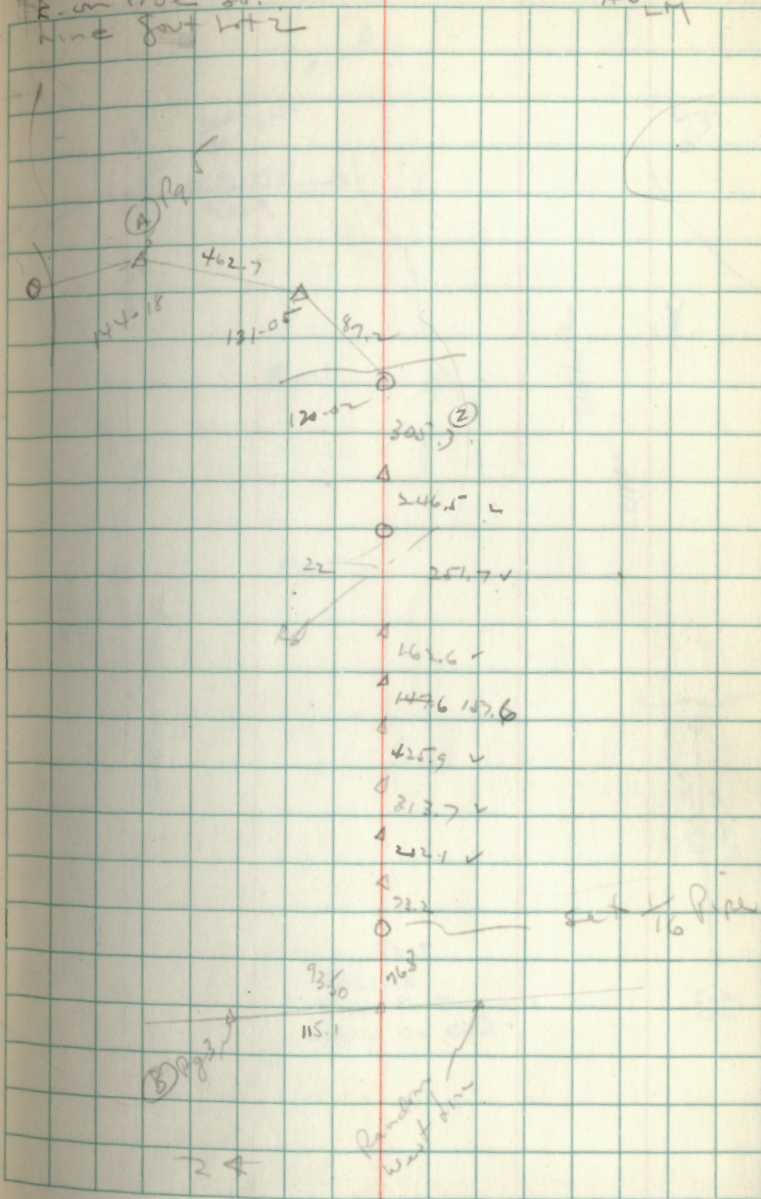 Line Govt Lot 2
LM
Pg 5
A
462.7
144-18
131-05
87.2
120-02
2
305.3
246.5
22
251.7 ✓
162.6 ✓
147.6 157.6
425.9 ✓
313.7 ✓
212.1 ✓
73.2
set 1/16 Pipe
93-50
763
115.1
B Pg 3
Random
West Line
24